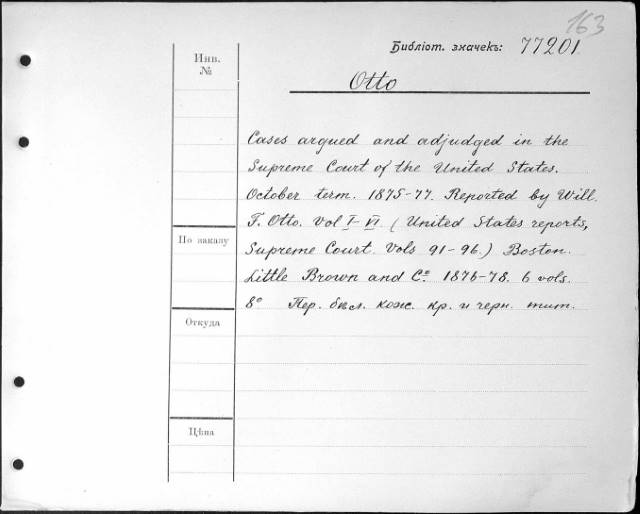 163
Библіот. значекъ: 77201
Инв.
№
Otto
Cases argued and adjudged in the
Supreme Court of the United States.
October term. 1875-77. Reported by Will.
T. Otto. Vol I-VI. (United States reports,
Supreme Court. Vols 91-96.) Boston.
Little Brown and Cº 1876-78. 6 vols.
8º Пер. бѣл. кож. кр. и черн. тит.
По заказу
Откуда
Цѣна